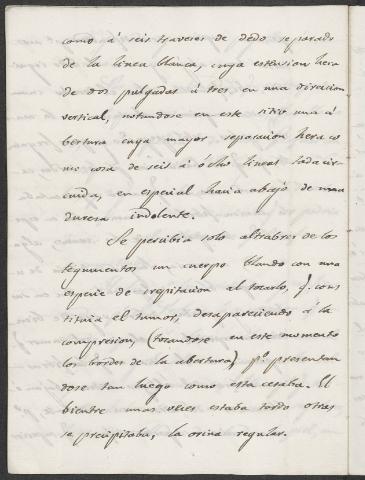 como á seis traveses de dedo separado
de la linea blanca, cuya estension hera
de dos pulgadas á tres, en una direccion
vertical, notandose en este sitio una á
bertura cuya mayor separacion hera co
mo cosa de seis á ócho lineas toda cir
cuida, en especial hacia abajo de una
duresa indolente.
Se percibia solo altrabes de los
tegumentos un cuerpo blando con una
especie de crepitacion al tocarlo, q. cons
tituia el tumor, desapareciendo á la
compresion, (tocandose en este momento
los bordes de la abertura) p.º presentan
dose tan luego como esta cesaba. El
bientre unas veces estaba tardo otras
se precipitaba, la orina regular.